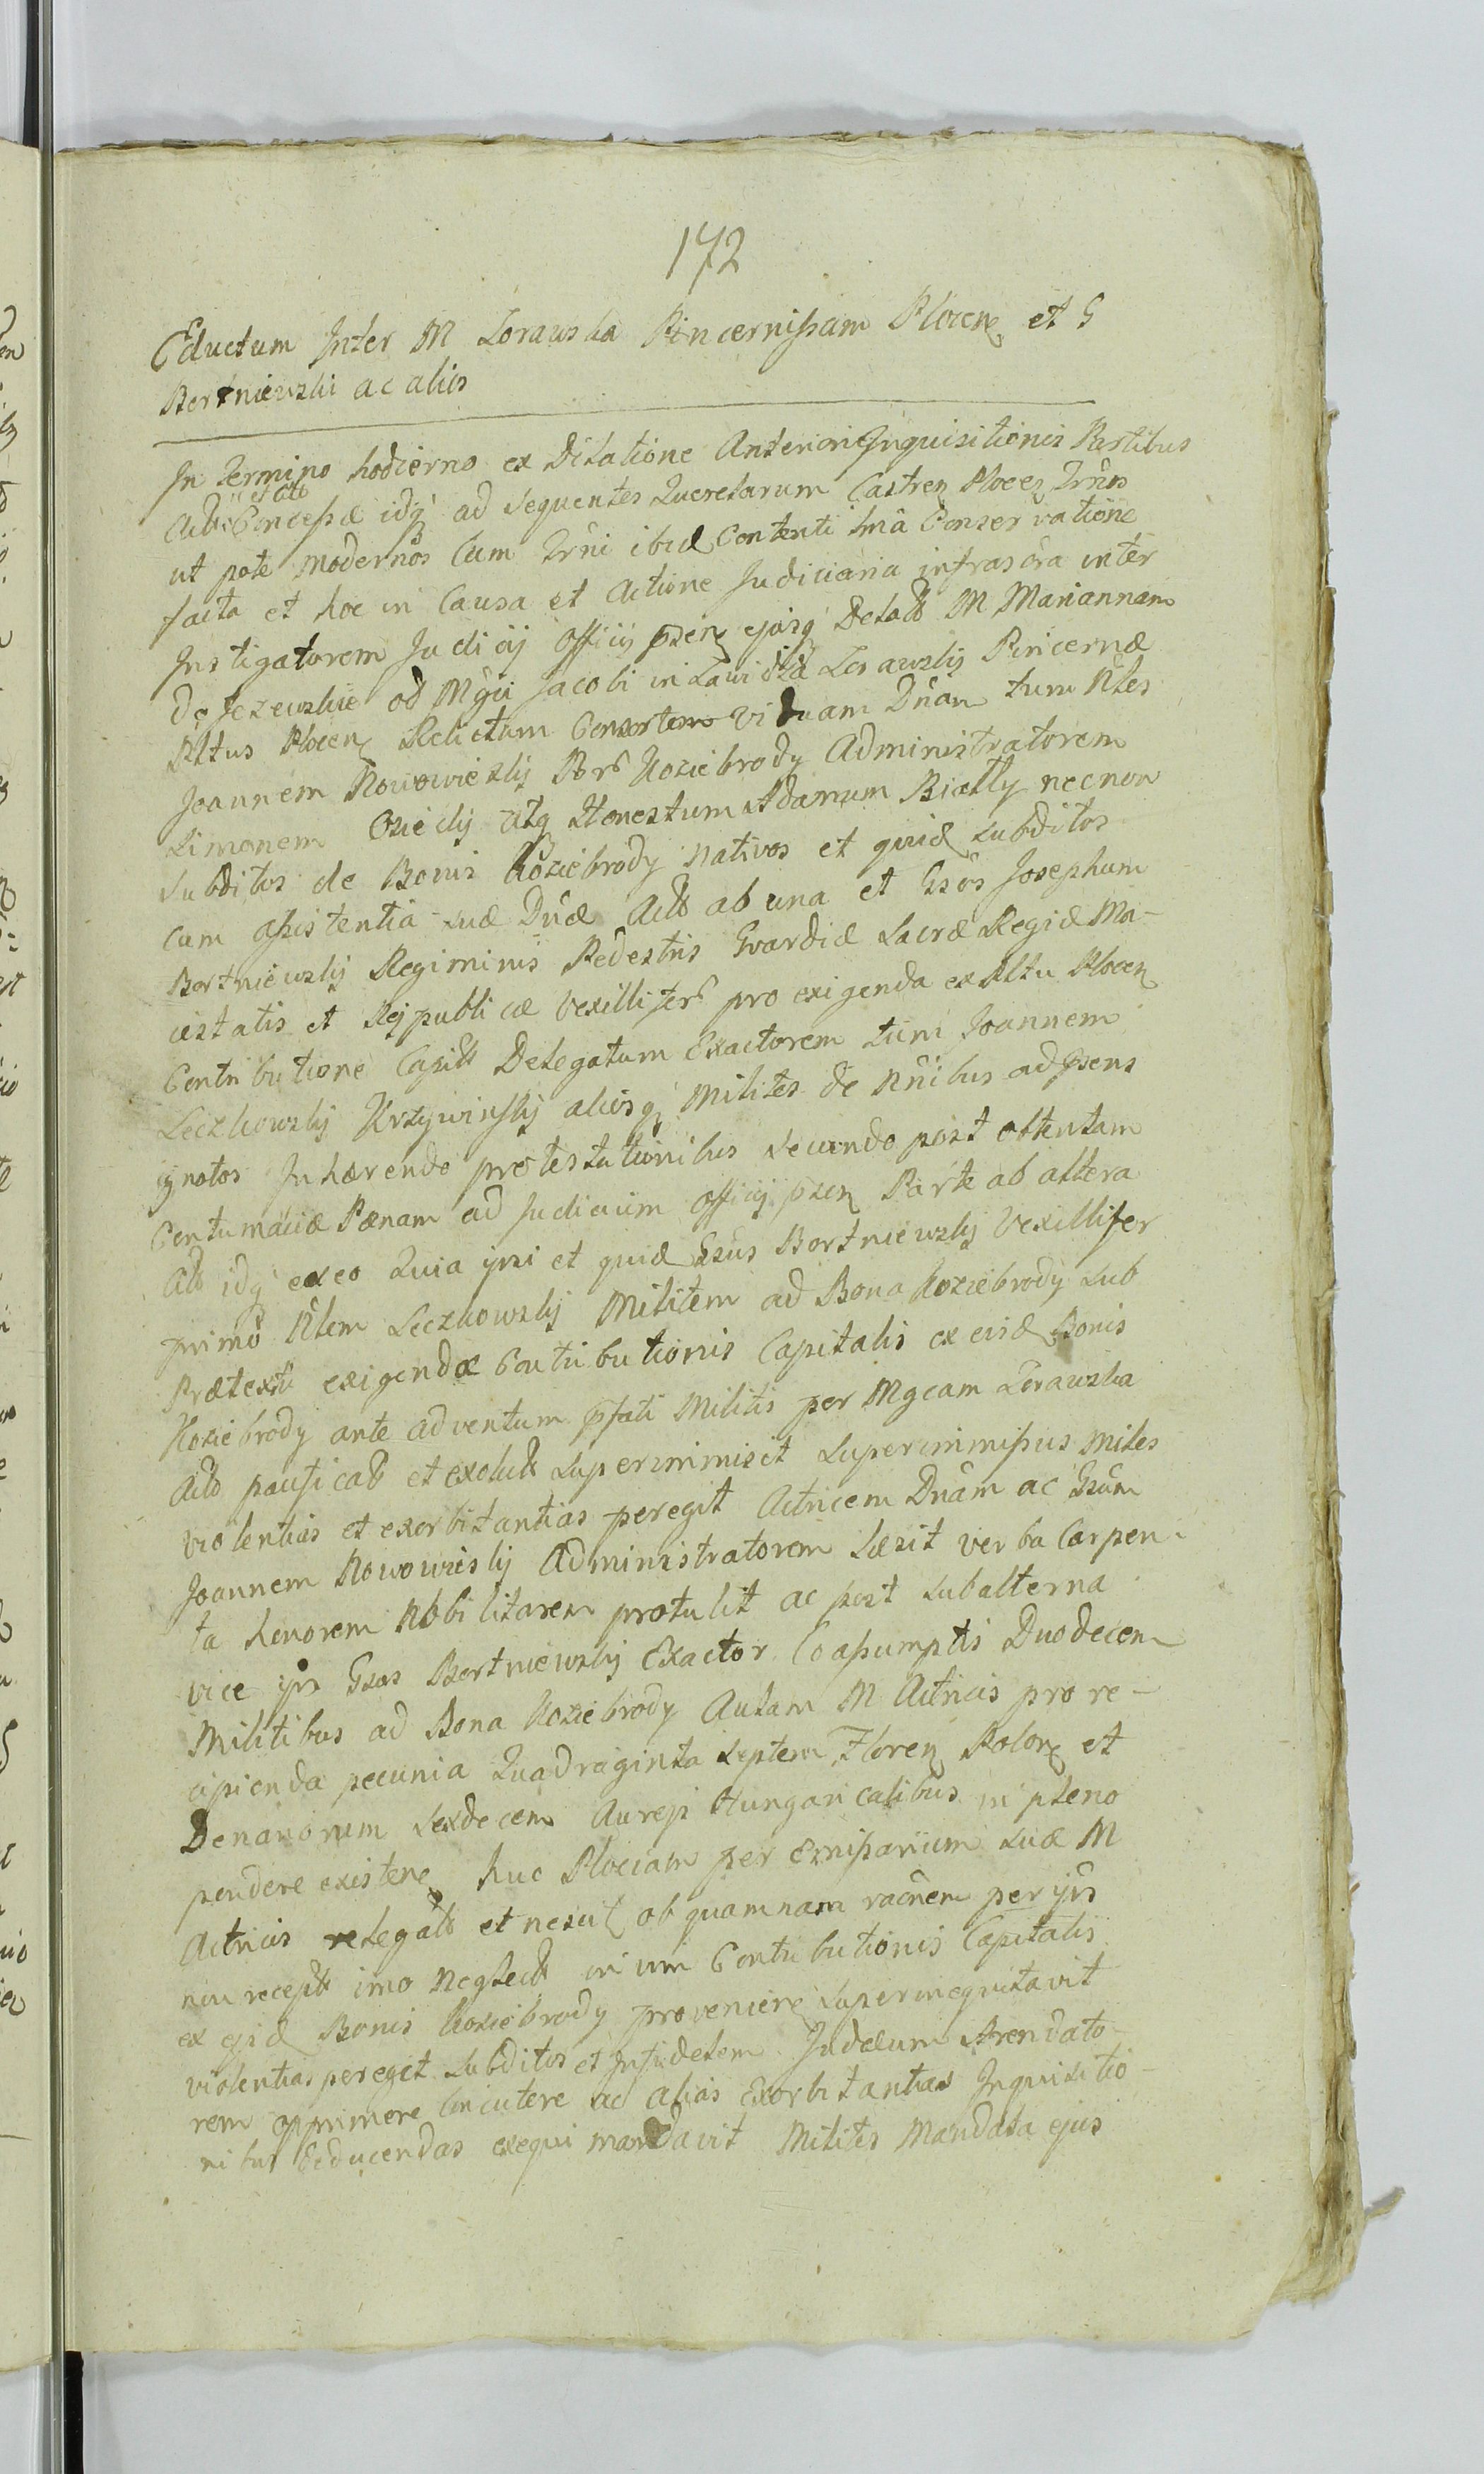 172
Eductum Inter M Zorawska Pincernissam Plocen et G
Bortniewski ac alios
In Termino hodierno ex Dilatione Anterioris Inquisitionis Partibus
Actis et Cto Concessæ idq ad sequentes Querelarum Castren Plocen Trnos
ut pote modernos Cum Trni ibid Contenti Smâ Conservatione
facta et hoc in Causa et Actione Judiciaria infrascra inter
Instigatorem Judicij Officij psen ejusq Delat M Mariannam
de Jezewskie od Mgci Jacobi in Zawidza Zorawskij Pincernæ
Pltus Plocen Relictam Consortem viduam Dnam tum Nles
Joannem Nowowieskij Bor Koziebrody Administratorem
Simonem Osiecky atq Honestum Adamum Bialły necnon
Subditos de Bonis Koziebrody nativos et quid subditos
cum assistentia suæ Dnæ Act ab una et Gsos Josephum
Bortniewskij Regiminis Pedestris Gvardiæ Sacræ Regiæ Ma-
iestatis et Reipublicæ Vexillifer pro exigenda ex Pltu Plocen
Contributione Capit Delegatum Exactorem tum Joannem
Leczkowskij Krzywinskij aliosq Milites de Nnibus ad psens
ignotos Inhærendo protestationibus secundo post obtentam
Contumaciæ Pænam ad Judicium Officij psen Parte ab altera
Ctt idq ex eo Quia ipsi et quid Gsus Bortniewskij Vexillifer
primo Nlem Leczkowskij Militem ad Bona Koziebrody sub
Prætextu exigendæ Contributionis Capitalis ex eisd Bonis
Koziebrody ante adventum pfati Militis per Mgcam Zorawska
Act pacificat et exolut superimmisit Superimmissus Miles
violentias et exorbitantias peregit Actricem Dnam ac Gsum
Joannem Nowowieskij Administratorem Læsit verba Carpen-
ta honorem Nobilitarem protulit ac post subalterna
vice ips Gsus Bortniewskij Exactor Coassumptis Duodecem
Militibus ad Bona Koziebrody Aulam M Actricis pro re-
cipienda pecunia Quadraginta septem Floren Polon et
Denariorum sexdecem Aureis Hungaricalibus in pleno
pondere existen huc Plociam per Emissarium suæ M
Actricis relegat et nescit ob quamnam racnem per ips
non recept imo Neglect in vim Contributionis Capitalis
ex eisd Bonis Koziebrody provenien superinequitavit
violentias peregit Subditos et Infidelem Judæum Arendato-
rem opprimere concutere ac alias Exorbitantias Inquisitio-
nibus deducendas exequi mandavit Milites Mandata ejus